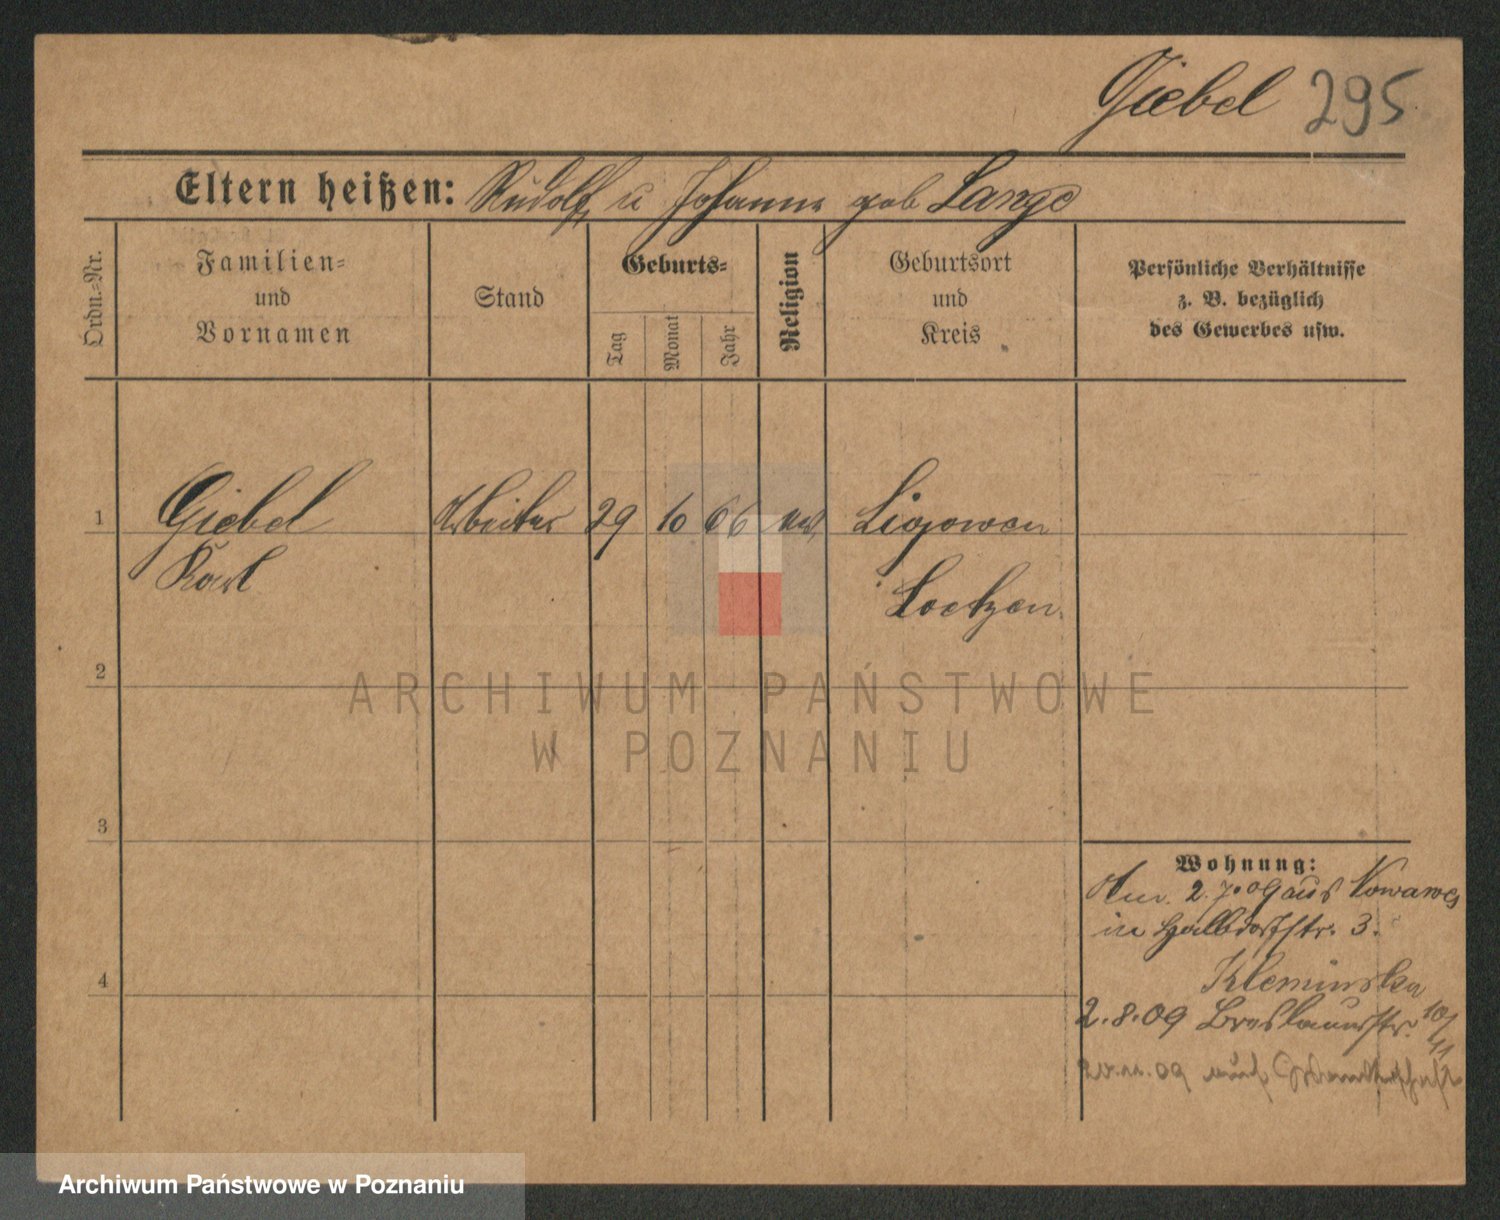 Giebel 295
Eltern heißen: Rudolf u Johanna geb Lange
Ordn.=Nr.
Familien=
und
Vornamen
Stand
Geburts=
Tag
Monat
Jahr
Religion
Geburtsort
und
Kreis
Persönliche Verhältnisse
z. B. bezüglich
des Gewerbes usw.
1 Giebel Arbeiter 29 10 66 ev. Ligowen
Karl Loetzen
2
ARCHIWUM PAŃSTWOWE
W POZNANIU
3
Wohnung:
2.7.09 aus Nowawes
in Halbdorfstr. 3.
Kleminska
4
2.8.09 Breslauerstr. 10/11
09 auf
Archiwum Państwowe w Poznaniu